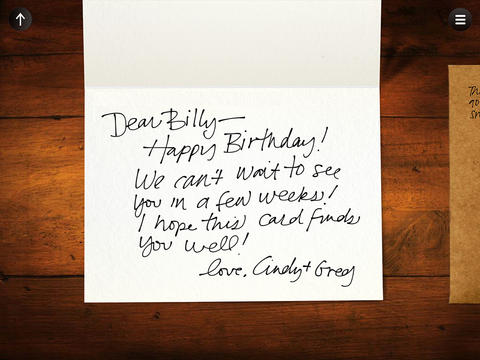 Dear Billy—
Happy Birthday!
We can't wait to see
you in a few weeks!
I hope this card finds
you well!
love, Cindy + Greg